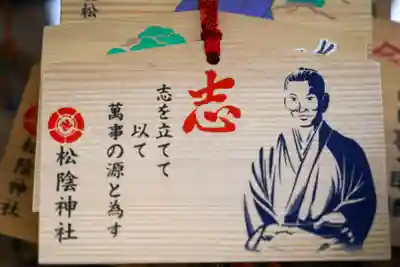 志
志を立てて
以て
萬事の源と為す
松陰神社
松